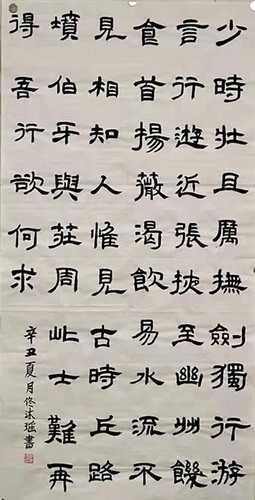 少時壯且厲撫劍獨行游
言行遊近張掖至幽州饑
食首揚薇渴飲易水流不
見相知人惟見古時丘路
墳伯牙與莊周此士難再
得吾行欲何求
辛丑夏月佟沐瑶書